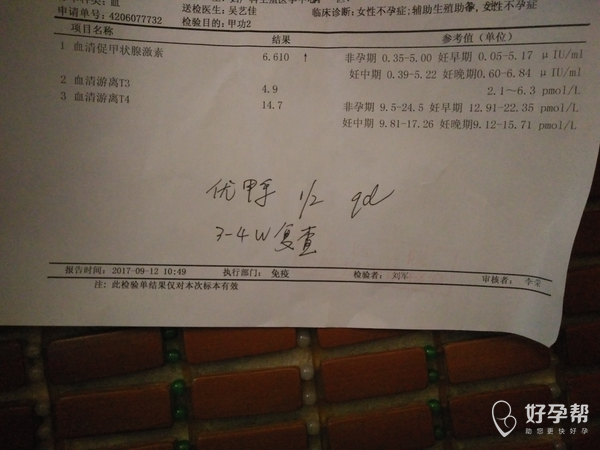 申请单号:4206077732
送检医生:吴艺佳
临床诊断:女性不孕症;辅助生殖助孕,女性不孕症
检验目的:甲功2
项目名称 结果 参考值(单位)
1 血清促甲状腺激素 6.610 ↑ 非孕期 0.35-5.00 妊早期 0.05-5.17 μIU/ml
妊中期 0.39-5.22 妊晚期0.60-6.84 μIU/ml
2 血清游离T3 4.9 2.1~6.3 pmol/L
3 血清游离T4 14.7 非孕期 9.5-24.5 妊早期 12.91-22.35 pmol/L
妊中期 9.81-17.26 妊晚期9.12-15.71 pmol/L
优甲乐 1/2 qd
3-4W复查
报告时间:2017-09-12 10:49 执行部门:免疫 检验者:刘军 审核者:李荣
注:此检验单结果仅对本次标本有效
好孕帮
助您更快好孕